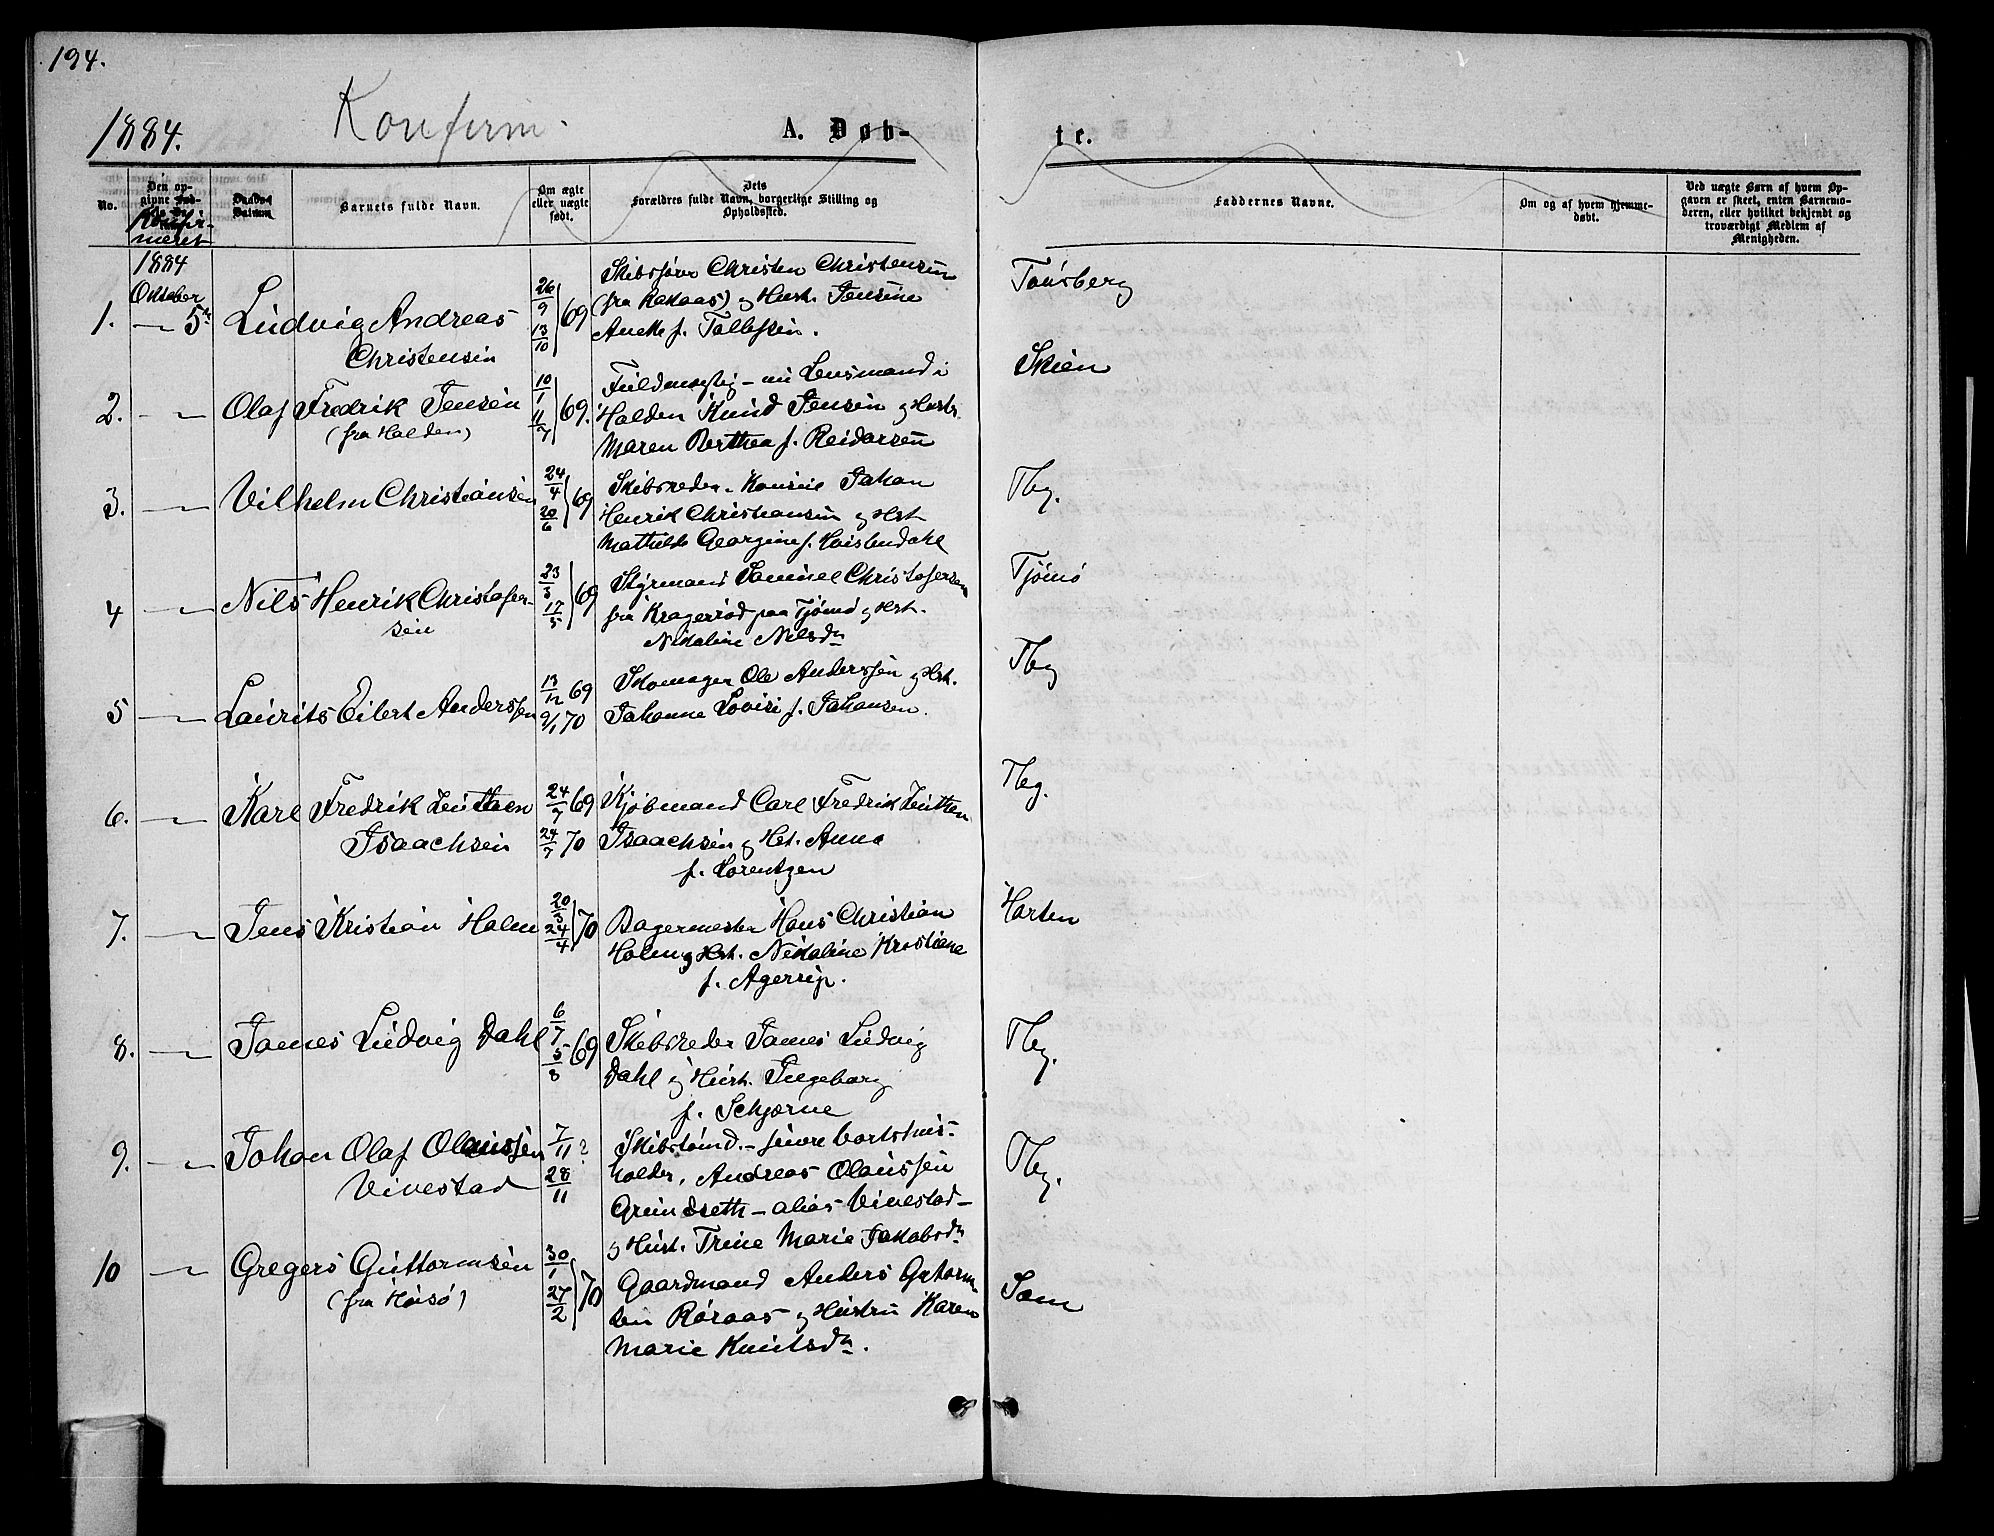 194.
1884.
Konfirm.
A. Døb-
te.
No.
Den op-
givne
Daabs-
Datum
Barnets fulde Navn.
Om ægte
eller uægte
født.
Dets
Forældres fulde Navn, borgerlige Stilling og
Opholdssted.
Faddernes Navne.
Om og af hvem hjemme-
døbt.
Ved uægte Børn af hvem Op-
gaven er skeet, enten Barnemo-
deren, eller hvilket bekjendt og
troværdigt Medlem af
Menigheden.
Konfir-
meret
1884
Oktober
1. — 5te
Ludvig Andreas
Christensen
26/9 13/10 69
Skibsfører Christen Christensen
(fra Rakaas) og Hust. Jensine
f. Tollefsen.
Tønsberg
2. — "
Olaf Fredrik Jensen
(fra Holden)
10/1 11/7 69.
Fuldmægtig - nu Lensmand i
Holden Knud Jensen og Hustr.
Maren Berthea f. Reidarsen
Skien
3. — "
Vilhelm Christiansen
24/4 20/6 69
Skibsreder. Johan
Henrik Christiansen og Hst
Mathilde Georgine f. Hvistendahl
Tbg.
4 — "
Nils Henrik Christofer-
sen
23/3 17/5 69
Styrmand Samuel Christofersen
fra Kragerød paa Tjømø og Hst.
Nikoline Nilsdn
Tjømø
5 — "
Laurits Eilert Anderssen
13/12 69
9/1 70
Skomager Ole Anderssen og Hst.
Johanne Lovise f. Johansen.
Tbg
6. — "
Karl Fredrik Zeuthen
Isaachsen
24/7 69
24/7 70
Kjøbmand Carl Fredrik Zeuthen
Isaachsen og Hst. Anna
f. Lorentzen
Tbg.
7. — "
Jens Kristian Holm
20/3 24/4 70
Bagermester Hans Christian
Holm og Hst. Nikoline Kristiane
f. Agerup.
Horten
8. — "
James Ludvig Dahl
6/7 5/8 69
Skibsreder James Ludvig
Dahl og Hust. Ingeborg
f. Schjerve
Tbg.
9. — "
Johan Olaf Olaussen
Vivestad
7/11 ?
28/11
Skibstømd. - senere Vertshus-
holder, Andreas Olaussen
Grundseth - alias Vivestad -
og Hust. Trine Marie Jakobsdn
Tbg.
10 — "
Gregers Guttormsen
(fra Husø)
30/1 27/2 70
Gaardmand Anders Gutorm
sen Røraas og Hustru Karen
Marie Knutsdn.
Sem